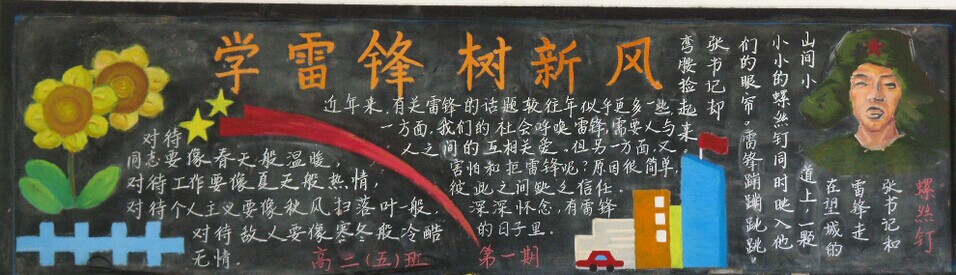 学雷锋 树新风
对待
同志要像春天般温暖，
对待工作要像夏天般热情，
对待个人主义要像秋风扫落叶一般，
对待敌人要像寒冬般冷酷
无情。
高二（五）班
第一期
近年来，有关雷锋的话题较往年似乎更多一些，
一方面，我们的社会呼唤雷锋，需要人与
人之间的互相关爱。但另一方面，又
害怕和拒雷锋呢？原因很简单，
彼此之间缺乏信任。
深深怀念，有雷锋
的日子里。
螺丝钉
张书记和
雷锋走
在望城的
道上，一颗
山间小
小小的螺丝钉同时映入他
们的眼帘。雷锋蹦蹦跳跳
张书记却
弯腰捡起来